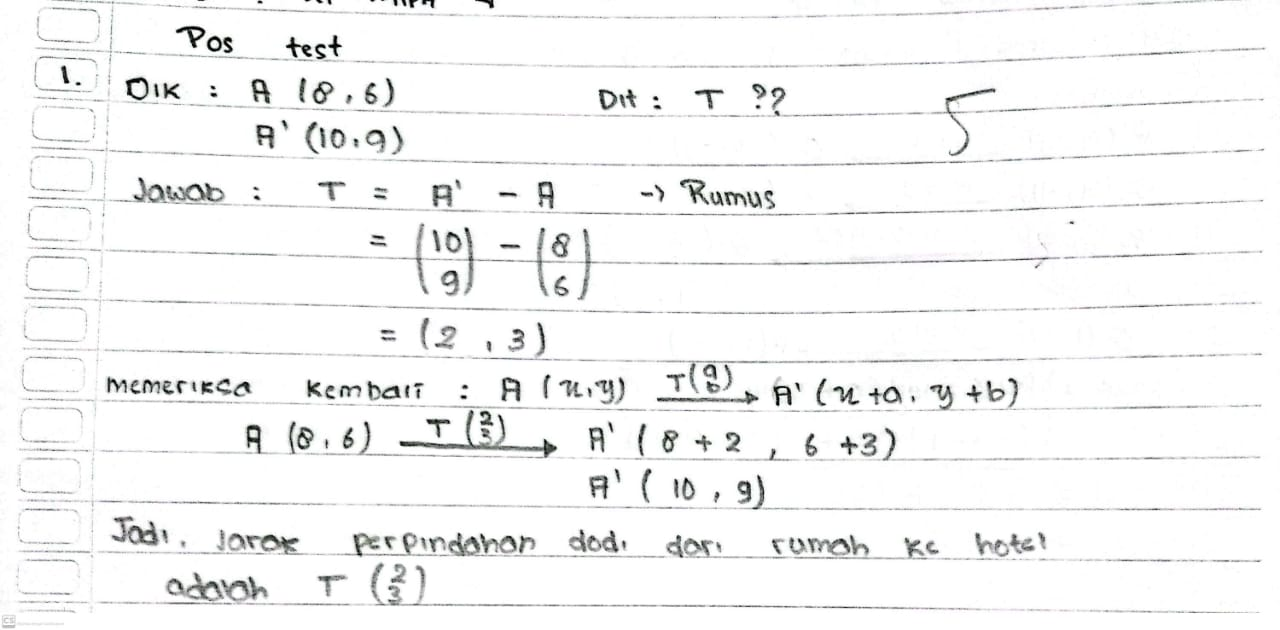 Pos test
1. Dik : A (8,6) Dit : T ?? 5
A' (10,9)
Jawab : T = A' - A -> Rumus
= (10 9) - (8 6)
= (2 , 3)
memeriksa kembali : A (x,y) T(a b) → A' (x+a, y+b)
A (8,6) T (2 3) → A' ( 8 + 2 , 6 +3)
A' ( 10 , 9)
Jadi, Jarak perpindahan dodi dari rumah ke hotel
adalah T (2 3)
CS